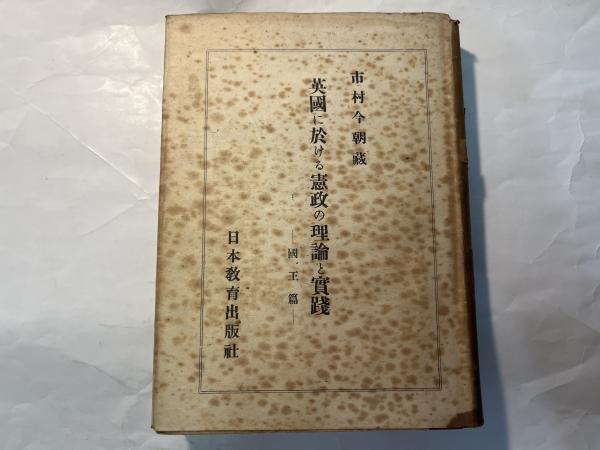 市村今朝藏
英國に於ける憲政の理論と實踐
―國王篇―
日本敎育出版社